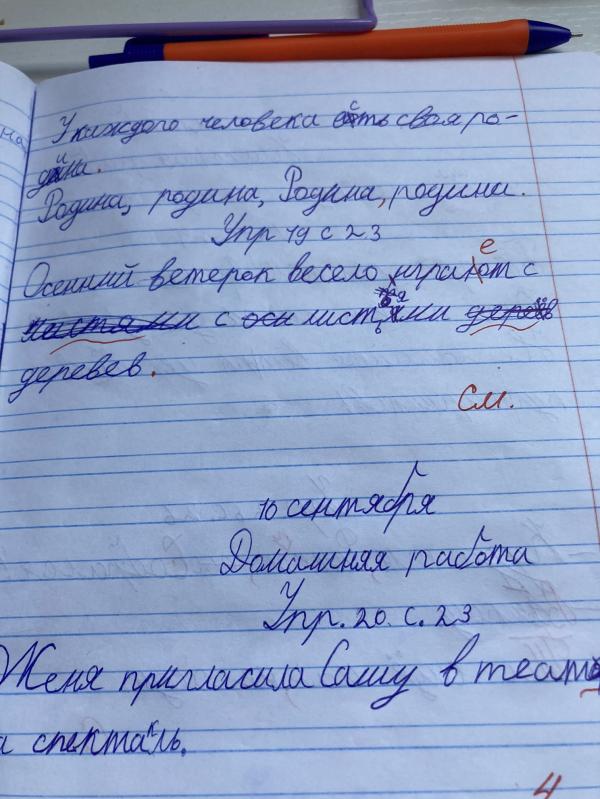 на
У каждого человека есть своя ро-
дина.
Родина, родина, Родина, родина.
Упр 19 с 23
е
Осенний ветерок весело играют с
листями с осн листями дерев
деревев.
См.
10 сентября
Домашняя работа
Упр. 20. с. 23
Женя пригласила Сашу в театр
а спектакль.
4